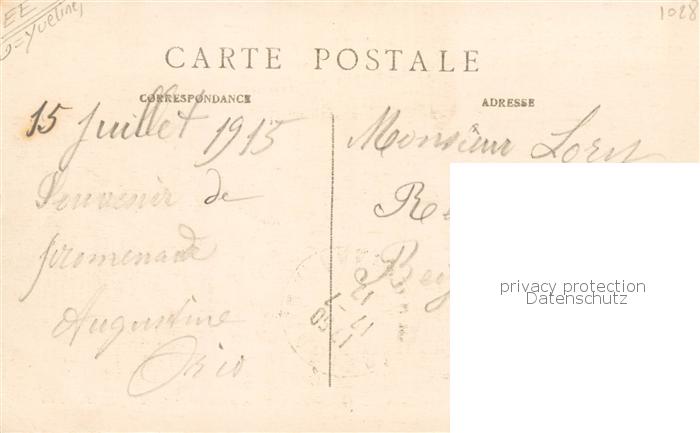 1028
CARTE POSTALE
CORRESPONDANCE
ADRESSE
15 Juillet 1915
Souvenir de
promenade
Augustine
Monsieur Lory
privacy protection
Datenschutz